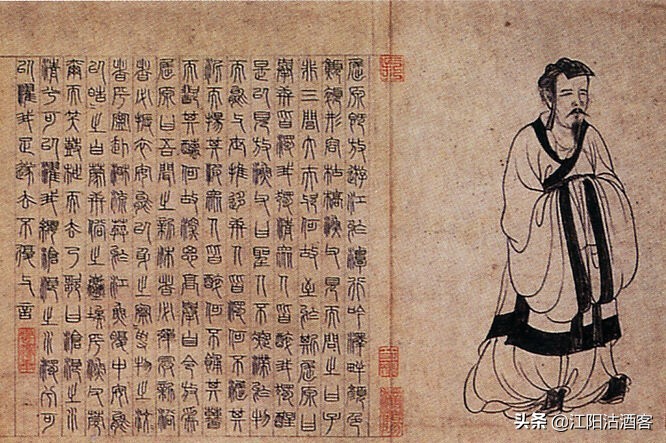 屈原既放游江於潭行吟澤畔顏色
顦顇形容枯槁漁父見而問之曰子
非三閭大夫與何故至於斯屈原曰
舉世皆濁我獨清眾人皆醉我獨醒
是以見放漁父曰聖人不凝滯於物
而能與世推移世人皆濁何不淈其
泥而揚其波眾人皆醉何不餔其糟
而歠其醨何故深思高舉自令放為
屈原曰吾聞之新沐者必彈冠新浴
者必振衣安能以身之察察受物之汶
者乎寧赴湘流葬於江魚腹中安能
以皓皓之白蒙世俗之塵埃乎漁父莞
爾而笑鼓枻而去乃歌曰滄浪之水
清兮可以濯我纓滄浪之水濁兮可
以濯我足遂去不復與言
头条 @江阳沽酒客